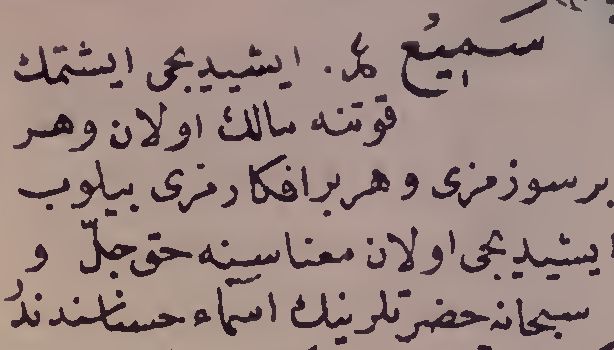 سَمِيُع ع. ايشيديجى ايشتمك
قوتنه مالك اولان وهر
بر سوزمزى وهر بر افكارمزى بيلوب
ايشيديجى اولان معناسينه حق جلّ و
سبحانه حضرتلرينك اسماء حسناسندندر